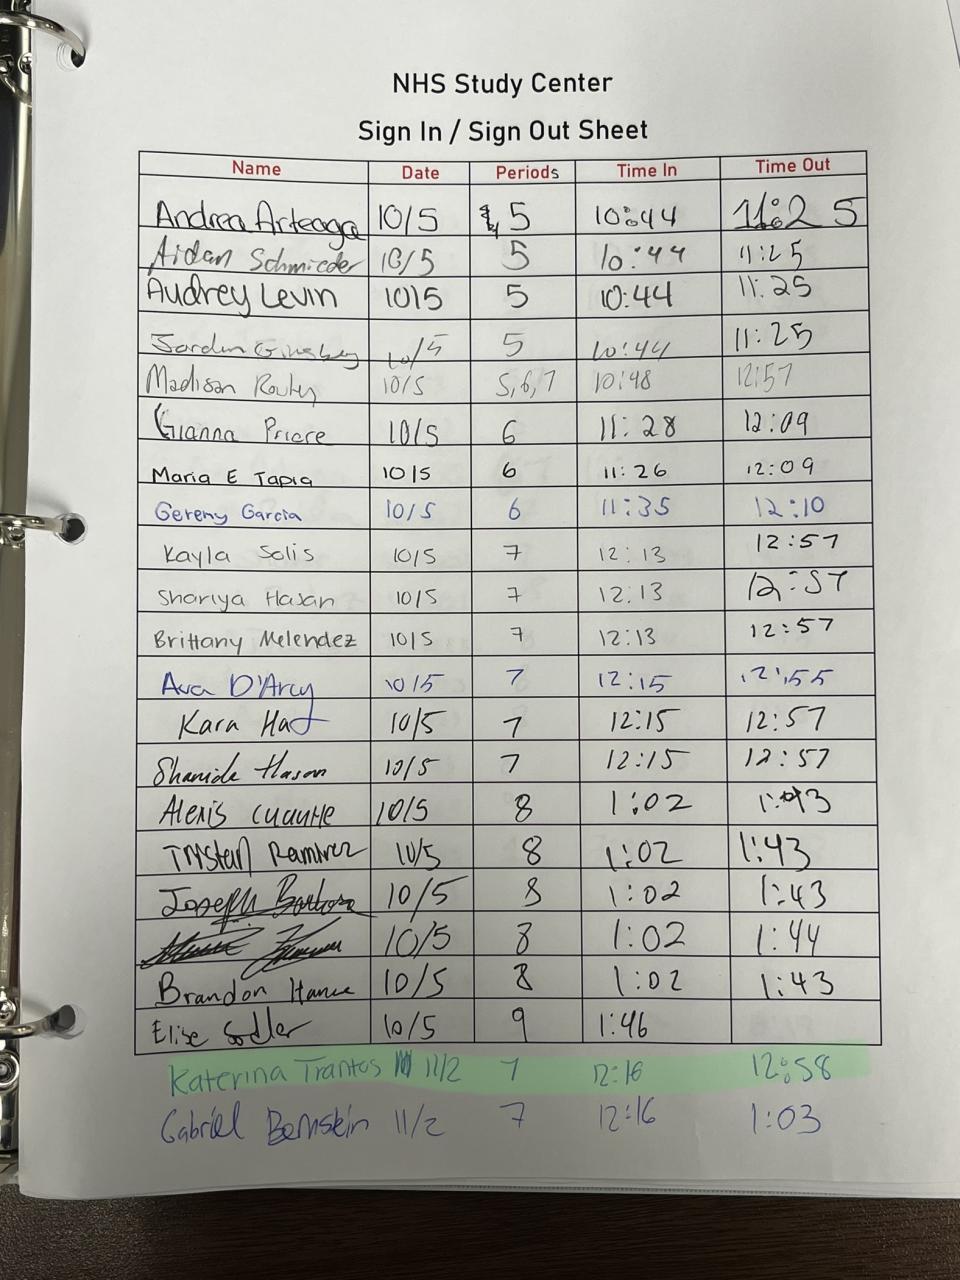 NHS Study Center
Sign In / Sign Out Sheet
Name Date Periods Time In Time Out
Andrea Arteaga 10/5 5 10:44 11:25
Aidan Schmieder 10/5 5 10:44 11:25
Audrey Levin 10/5 5 10:44 11:25
Jordan Ginsberg 10/5 5 10:44 11:25
Madison 10/5 5,6,7 10:48 12:57
Gianna Priore 10/5 6 11:28 12:09
Maria E Tapia 10/5 6 11:26 12:09
Gereny Garcia 10/5 6 11:35 12:10
Kayla Solis 10/5 7 12:13 12:57
Shariya Hasan 10/5 7 12:13 12:57
Brittany Melendez 10/5 7 12:13 12:57
Ava D'Arcy 10/5 7 12:15 12:55
Kara 10/5 7 12:15 12:57
Hasan 10/5 7 12:15 12:57
Alexis Cuautle 10/5 8 1:02 1:43
Ramirez 10/5 8 1:02 1:43
Joseph Barbosa 10/5 8 1:02 1:43
10/5 8 1:02 1:44
Brandon 10/5 8 1:02 1:43
Elise 10/5 9 1:46
Katerina Trantos 11/2 7 12:16 12:58
Gabriel Bernstein 11/2 7 12:16 1:03